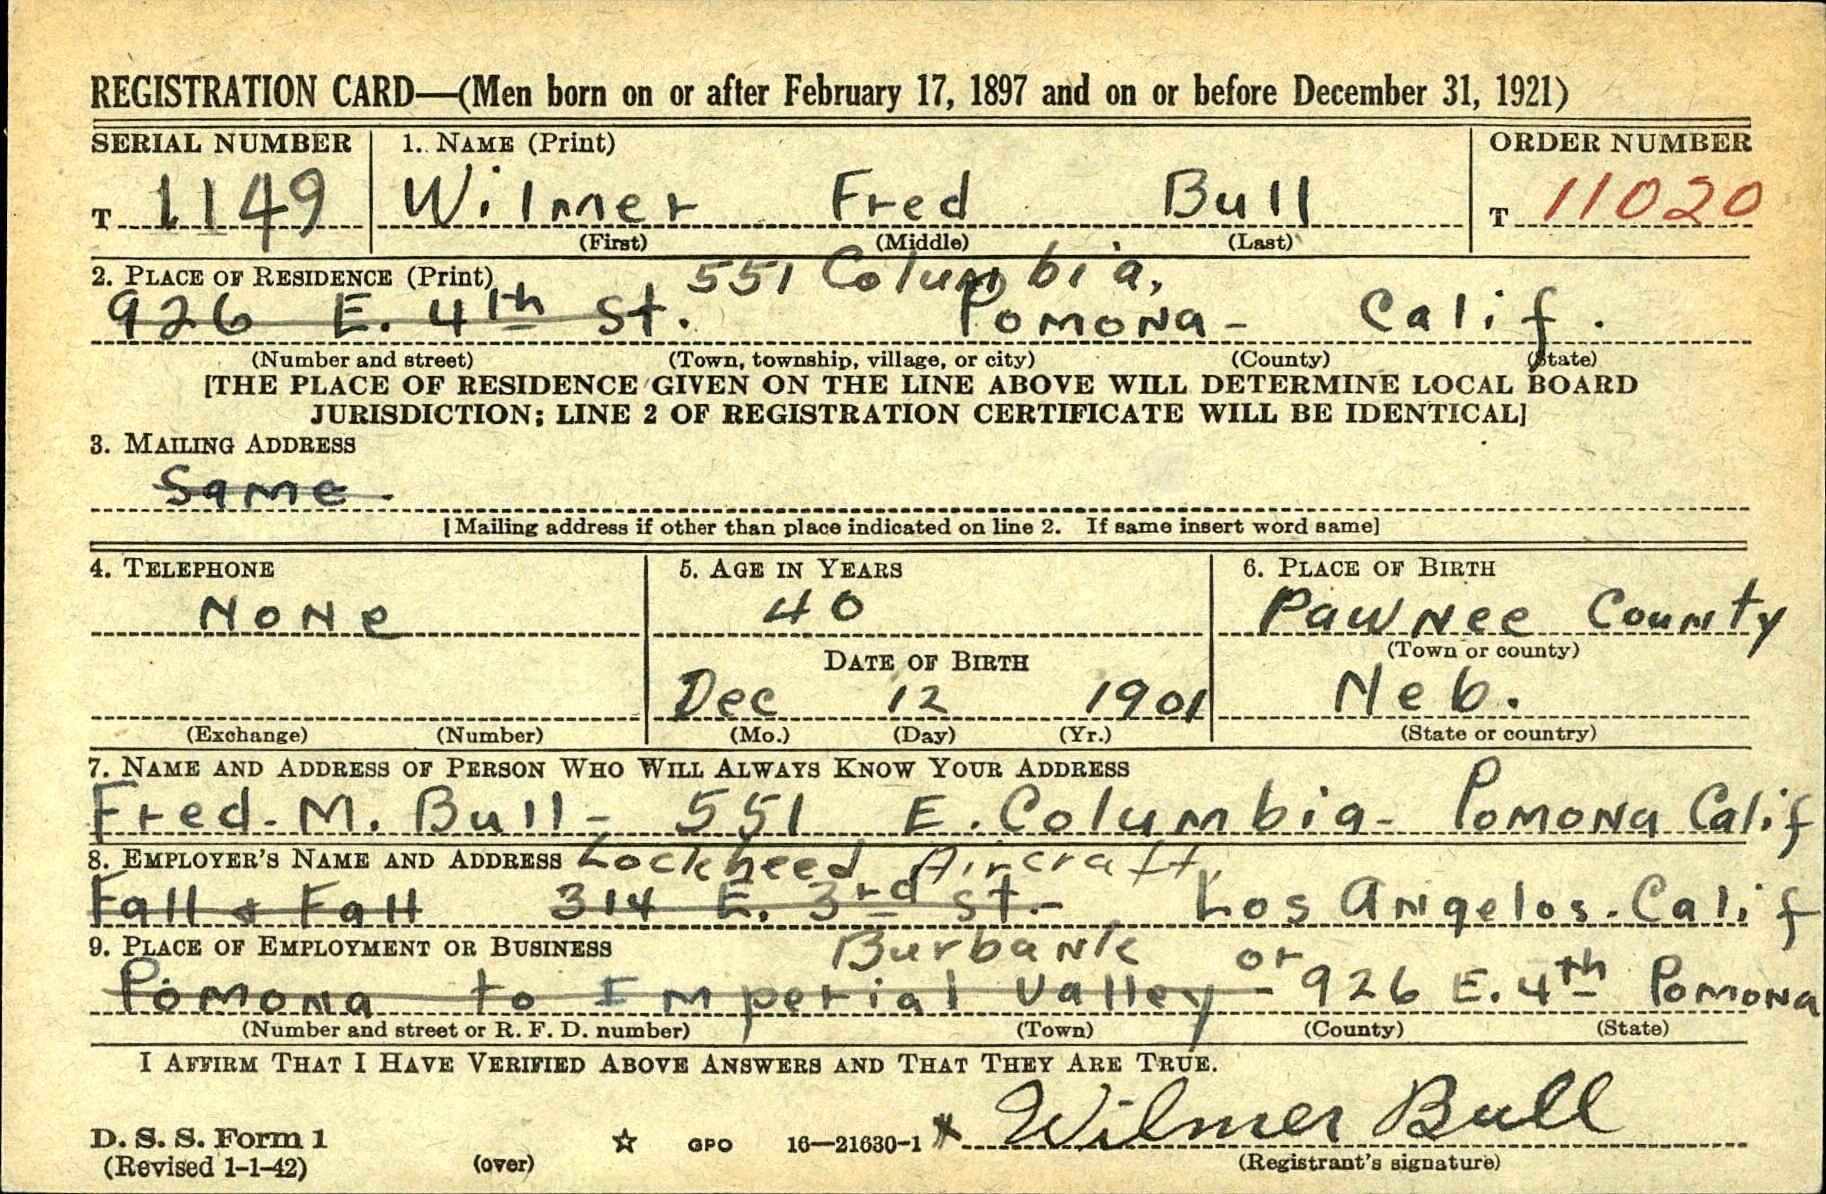 REGISTRATION CARD—(Men born on or after February 17, 1897 and on or before December 31, 1921)
SERIAL NUMBER 1. NAME (Print) ORDER NUMBER
T 1149 Wilmer Fred Bull T 11020
(First) (Middle) (Last)
2. PLACE OF RESIDENCE (Print) 551 Columbia,
926 E. 4th St. Pomona - Calif.
(Number and street) (Town, township, village, or city) (County) (State)
[THE PLACE OF RESIDENCE GIVEN ON THE LINE ABOVE WILL DETERMINE LOCAL BOARD
JURISDICTION; LINE 2 OF REGISTRATION CERTIFICATE WILL BE IDENTICAL]
3. MAILING ADDRESS
Same.
[Mailing address if other than place indicated on line 2. If same insert word same]
4. TELEPHONE 5. AGE IN YEARS 6. PLACE OF BIRTH
None 40 Pawnee County
(Town or county)
DATE OF BIRTH
Dec 12 1901 Neb.
(Exchange) (Number) (Mo.) (Day) (Yr.) (State or country)
7. NAME AND ADDRESS OF PERSON WHO WILL ALWAYS KNOW YOUR ADDRESS
Fred. M. Bull - 551 E. Columbia - Pomona Calif
8. EMPLOYER'S NAME AND ADDRESS Lockheed Aircraft,
Fall & Fall 314 E. 3rd St. - Los Angelos. Calif
9. PLACE OF EMPLOYMENT OR BUSINESS Burbank
Pomona to Imperial Valley - or 926 E. 4th Pomona
(Number and street or R. F. D. number) (Town) (County) (State)
I AFFIRM THAT I HAVE VERIFIED ABOVE ANSWERS AND THAT THEY ARE TRUE.
D. S. S. Form 1 ☆ GPO 16—21630-1 Wilmer Bull
(Revised 1-1-42) (over) (Registrant's signature)